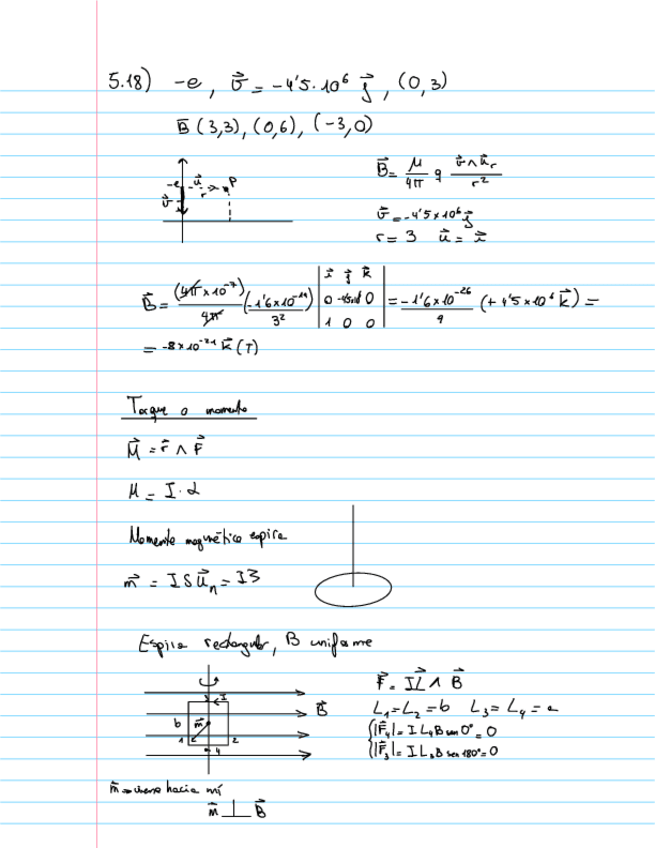 5.18) -e, v⃗ = -4'5·10⁶ j⃗, (0,3)
B̄ (3,3), (0,6), (-3,0)
-e u⃗ r P
v⃗
B⃗ = μ/4π q v⃗∧u⃗r/r²
v⃗ = -4'5×10⁶ j⃗
r = 3 u⃗ = i⃗
B⃗ = (4π×10⁻⁷)/4π (-1'6×10⁻¹⁹)/3² | i⃗ j⃗ k⃗ | = -1'6×10⁻²⁶/9 (+4'5×10⁶ k⃗) =
0 -4'5·10⁶ 0
1 0 0
= -8×10⁻²¹ k⃗ (T)
Torque o momento
M⃗ = r⃗ ∧ F⃗
M = I·α
Momento magnético espira
m⃗ = I S u⃗n = I S⃗
Espira rectangular, B uniforme
I
B⃗
b m⃗
1 2
4
F⃗ = I L⃗ ∧ B⃗
L₁ = L₂ = b L₃ = L₄ = a
|F⃗₄| = I L₄ B sen 0° = 0
|F⃗₃| = I L₃ B sen 180° = 0
m⃗ hacia mí
m⃗ ⊥ B⃗